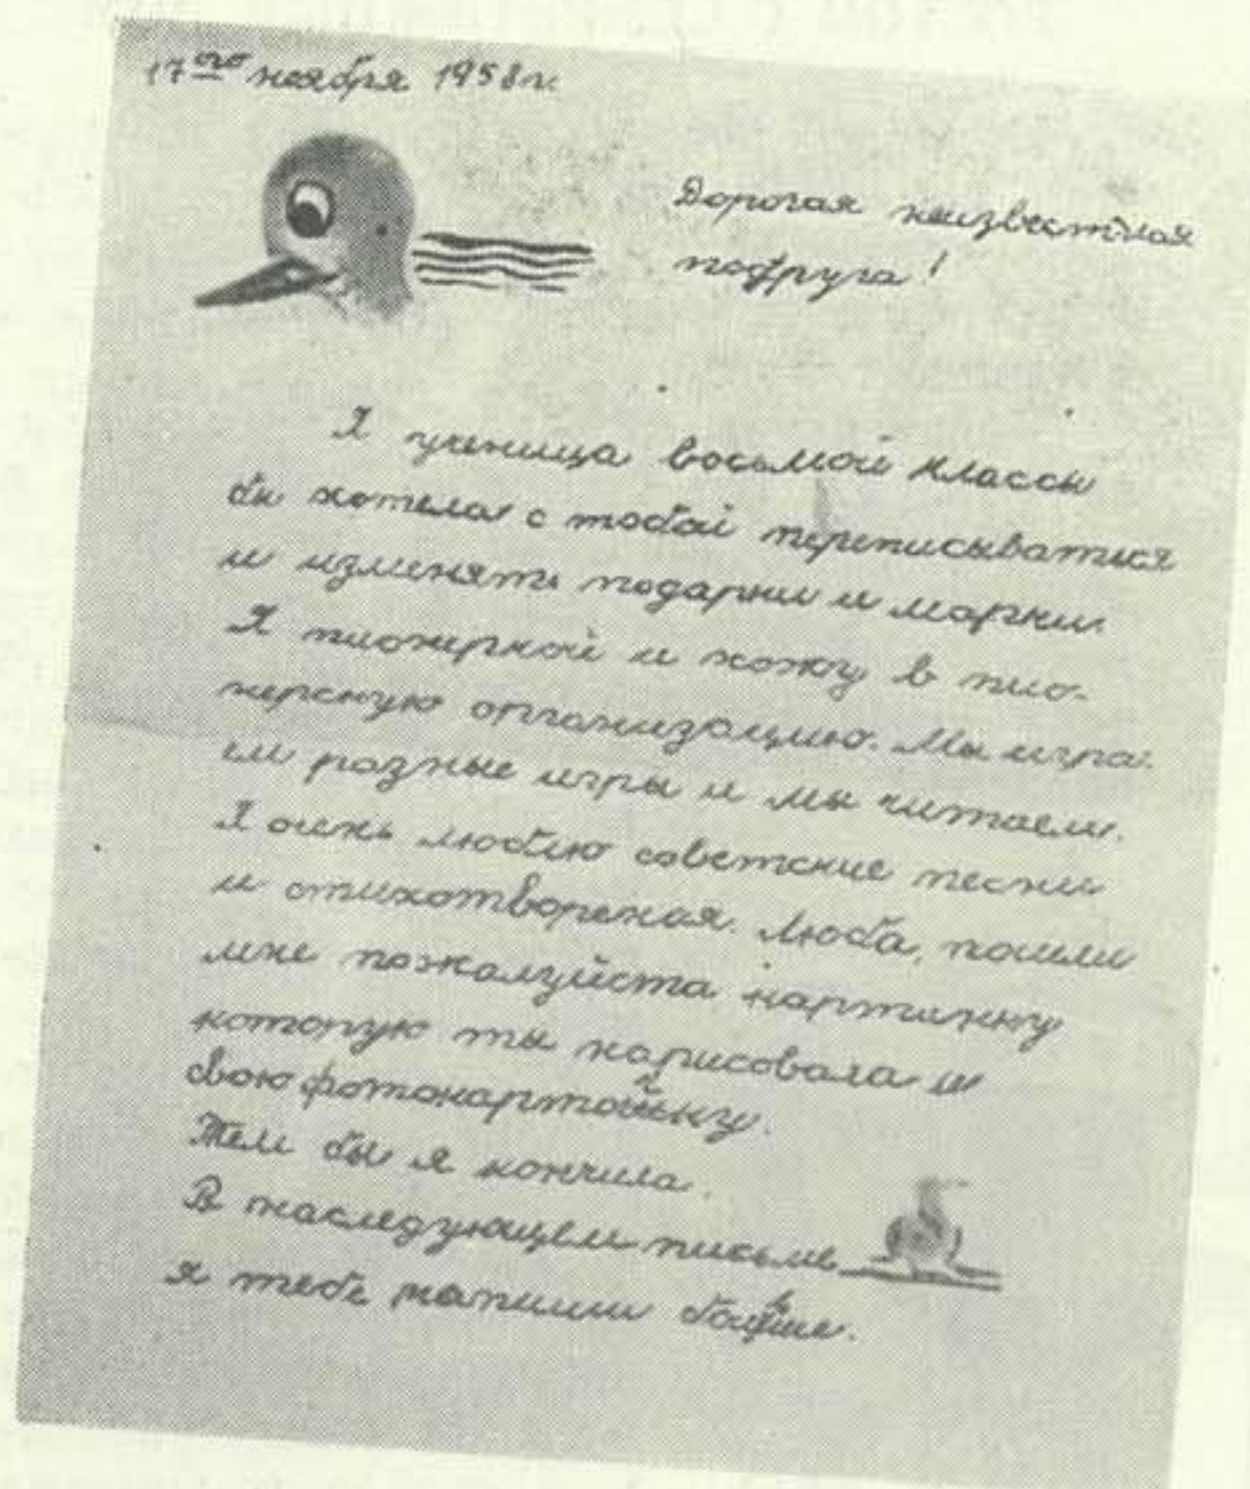 17ого ноября 1958 г.
Дорогая неизвестная
подруга!
Я ученица восьмой классы
бы хотела с тобой переписываться
и изменять подарки и марки.
Я пионеркой и хожу в пио-
нерскую организацию. Мы игра-
ем разные игры и мы читаем.
Я очень люблю советские песни
и стихотвореная. Люба, пошли
мне пожалуйста картинку
которую ты нарисовала и
свою фотокарточку.
Тем бы я кончила.
В последующем письме
я тебе напишу больше.